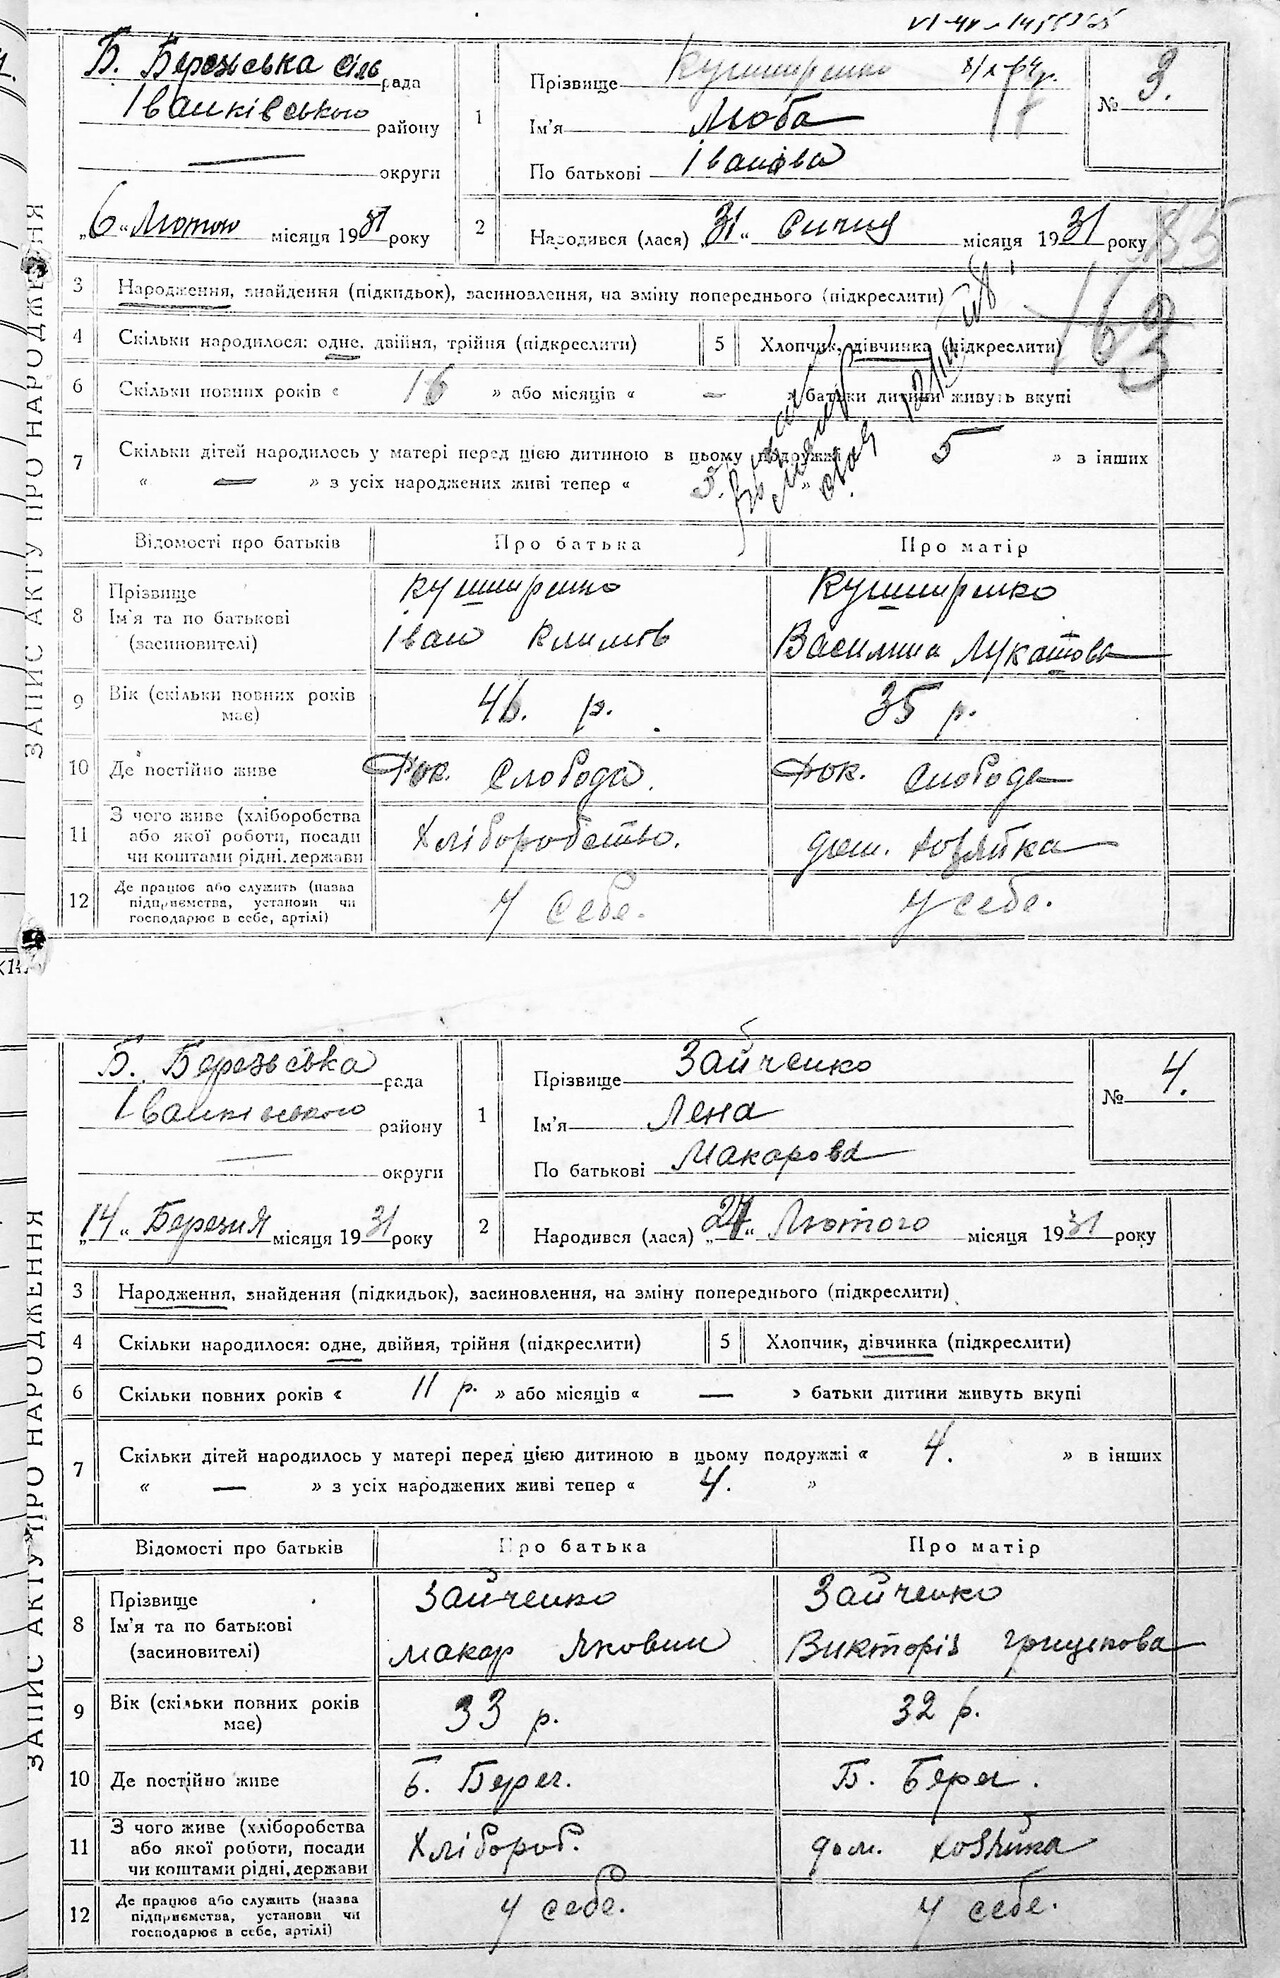 Б. Березська сіль рада
Іванківського району
— округи
„6“ Лютого місяця 1931 року
1
Прізвище Кушніренко
Ім'я Люба
По батькові Іванова
№ 3.
2
Народився (лася) „31“ Січня місяця 1931 року
163
ЗАПИС АКТУ ПРО НАРОДЖЕННЯ
3 Народження, знайдення (підкидьок), засиновлення, на зміну попереднього (підкреслити)
4 Скільки народилося: одне, двійня, трійня (підкреслити) 5 Хлопчик, дівчинка (підкреслити)
6 Скільки повних років « 16 » або місяців « — » батьки дитини живуть вкупі
7 Скільки дітей народилось у матері перед цією дитиною в цьому подружжі « 5 » в інших
« — » з усіх народжених живі тепер « 5. »
Відомості про батьків Про батька Про матір
8 Прізвище Кушніренко Кушніренко
Ім'я та по батькові Іван Климів Василина Лукашова
(засиновителі)
9 Вік (скільки повних років має) 46. р. 35 р.
10 Де постійно живе Фок. Слобода. Фок. Слобода
11 З чого живе (хліборобства
або якої роботи, посади Хліборобство. дом. хозяйка
чи коштами рідні, держави
12 Де працює або служить (назва
підприємства, установи чи У себе. У себе.
господарює в себе, артілі)
Б. Березьська рада
Іванківського району
— округи
„14“ Березня місяця 1931 року
1
Прізвище Зайченко
Ім'я Лена
По батькові Макарова
№ 4.
2
Народився (лася) „24“ Лютого місяця 1931 року
ЗАПИС АКТУ ПРО НАРОДЖЕННЯ
3 Народження, знайдення (підкидьок), засиновлення, на зміну попереднього (підкреслити)
4 Скільки народилося: одне, двійня, трійня (підкреслити) 5 Хлопчик, дівчинка (підкреслити)
6 Скільки повних років « 11 р. » або місяців « — » батьки дитини живуть вкупі
7 Скільки дітей народилось у матері перед цією дитиною в цьому подружжі « 4. » в інших
« — » з усіх народжених живі тепер « 4. »
Відомості про батьків Про батька Про матір
8 Прізвище Зайченко Зайченко
Ім'я та по батькові Макар Яковин Викторія Грищенова
(засиновителі)
9 Вік (скільки повних років має) 33 р. 32 р.
10 Де постійно живе Б. Берег. Б. Берег.
11 З чого живе (хліборобства
або якої роботи, посади Хлібороб. дом. хозяйка
чи коштами рідні, держави
12 Де працює або служить (назва
підприємства, установи чи У себе. У себе.
господарює в себе, артілі)